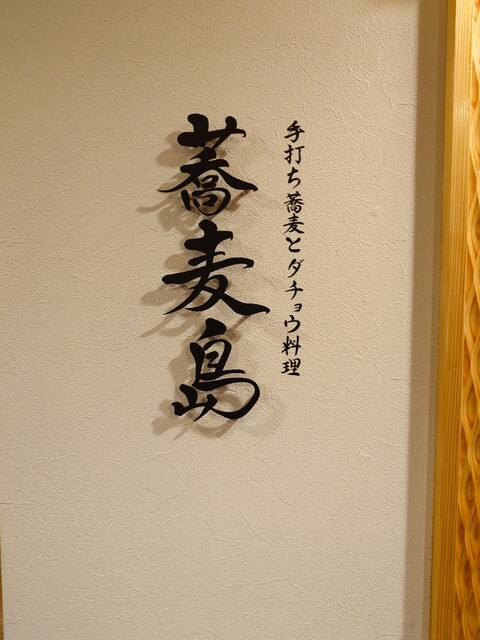 手打ち蕎麦とダチョウ料理
蕎麦島